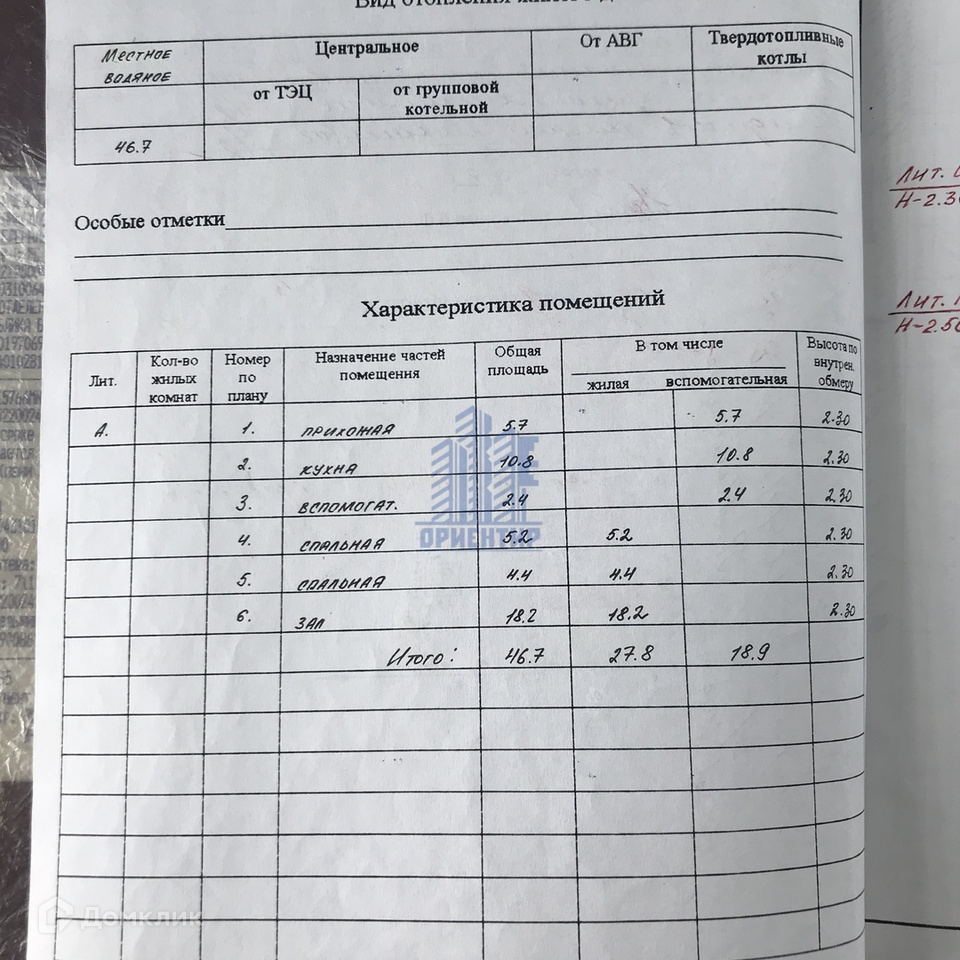 Местное водяное
Центральное
От АВГ
Твердотопливные котлы
от ТЭЦ
от групповой котельной
46.7
Особые отметки
Характеристика помещений
Лит.
Кол-во жилых комнат
Номер по плану
Назначение частей помещения
Общая площадь
В том числе
Высота по внутрен. обмеру
жилая
вспомогательная
А. 1. прихожая 5.7 5.7 2.30
2. кухна 10.8 10.8 2.30
3. вспомогат. 2.4 2.4 2.30
4. спальная 5.2 5.2 2.30
5. спальная 4.4 4.4 2.30
6. зал 18.2 18.2 2.30
Итого: 46.7 27.8 18.9
ОРИЕНТИР
Домклик
Лит.
Н-2.3
Лит.
Н-2.50